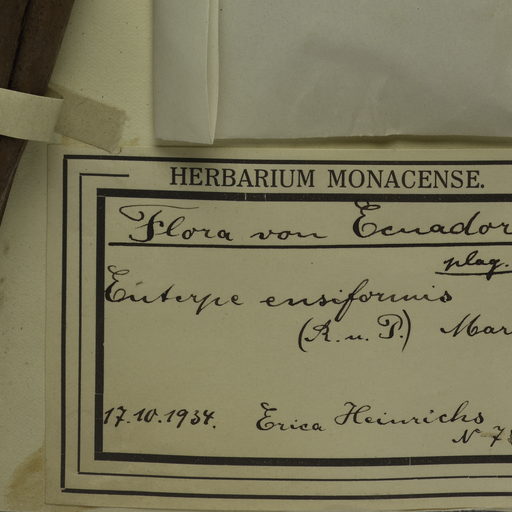 HERBARIUM MONACENSE.
Flora von Ecuador
plag.
Euterpe ensiformis
(R. u. P.) Mar
17.10.1934. Erica Heinrichs
N 7